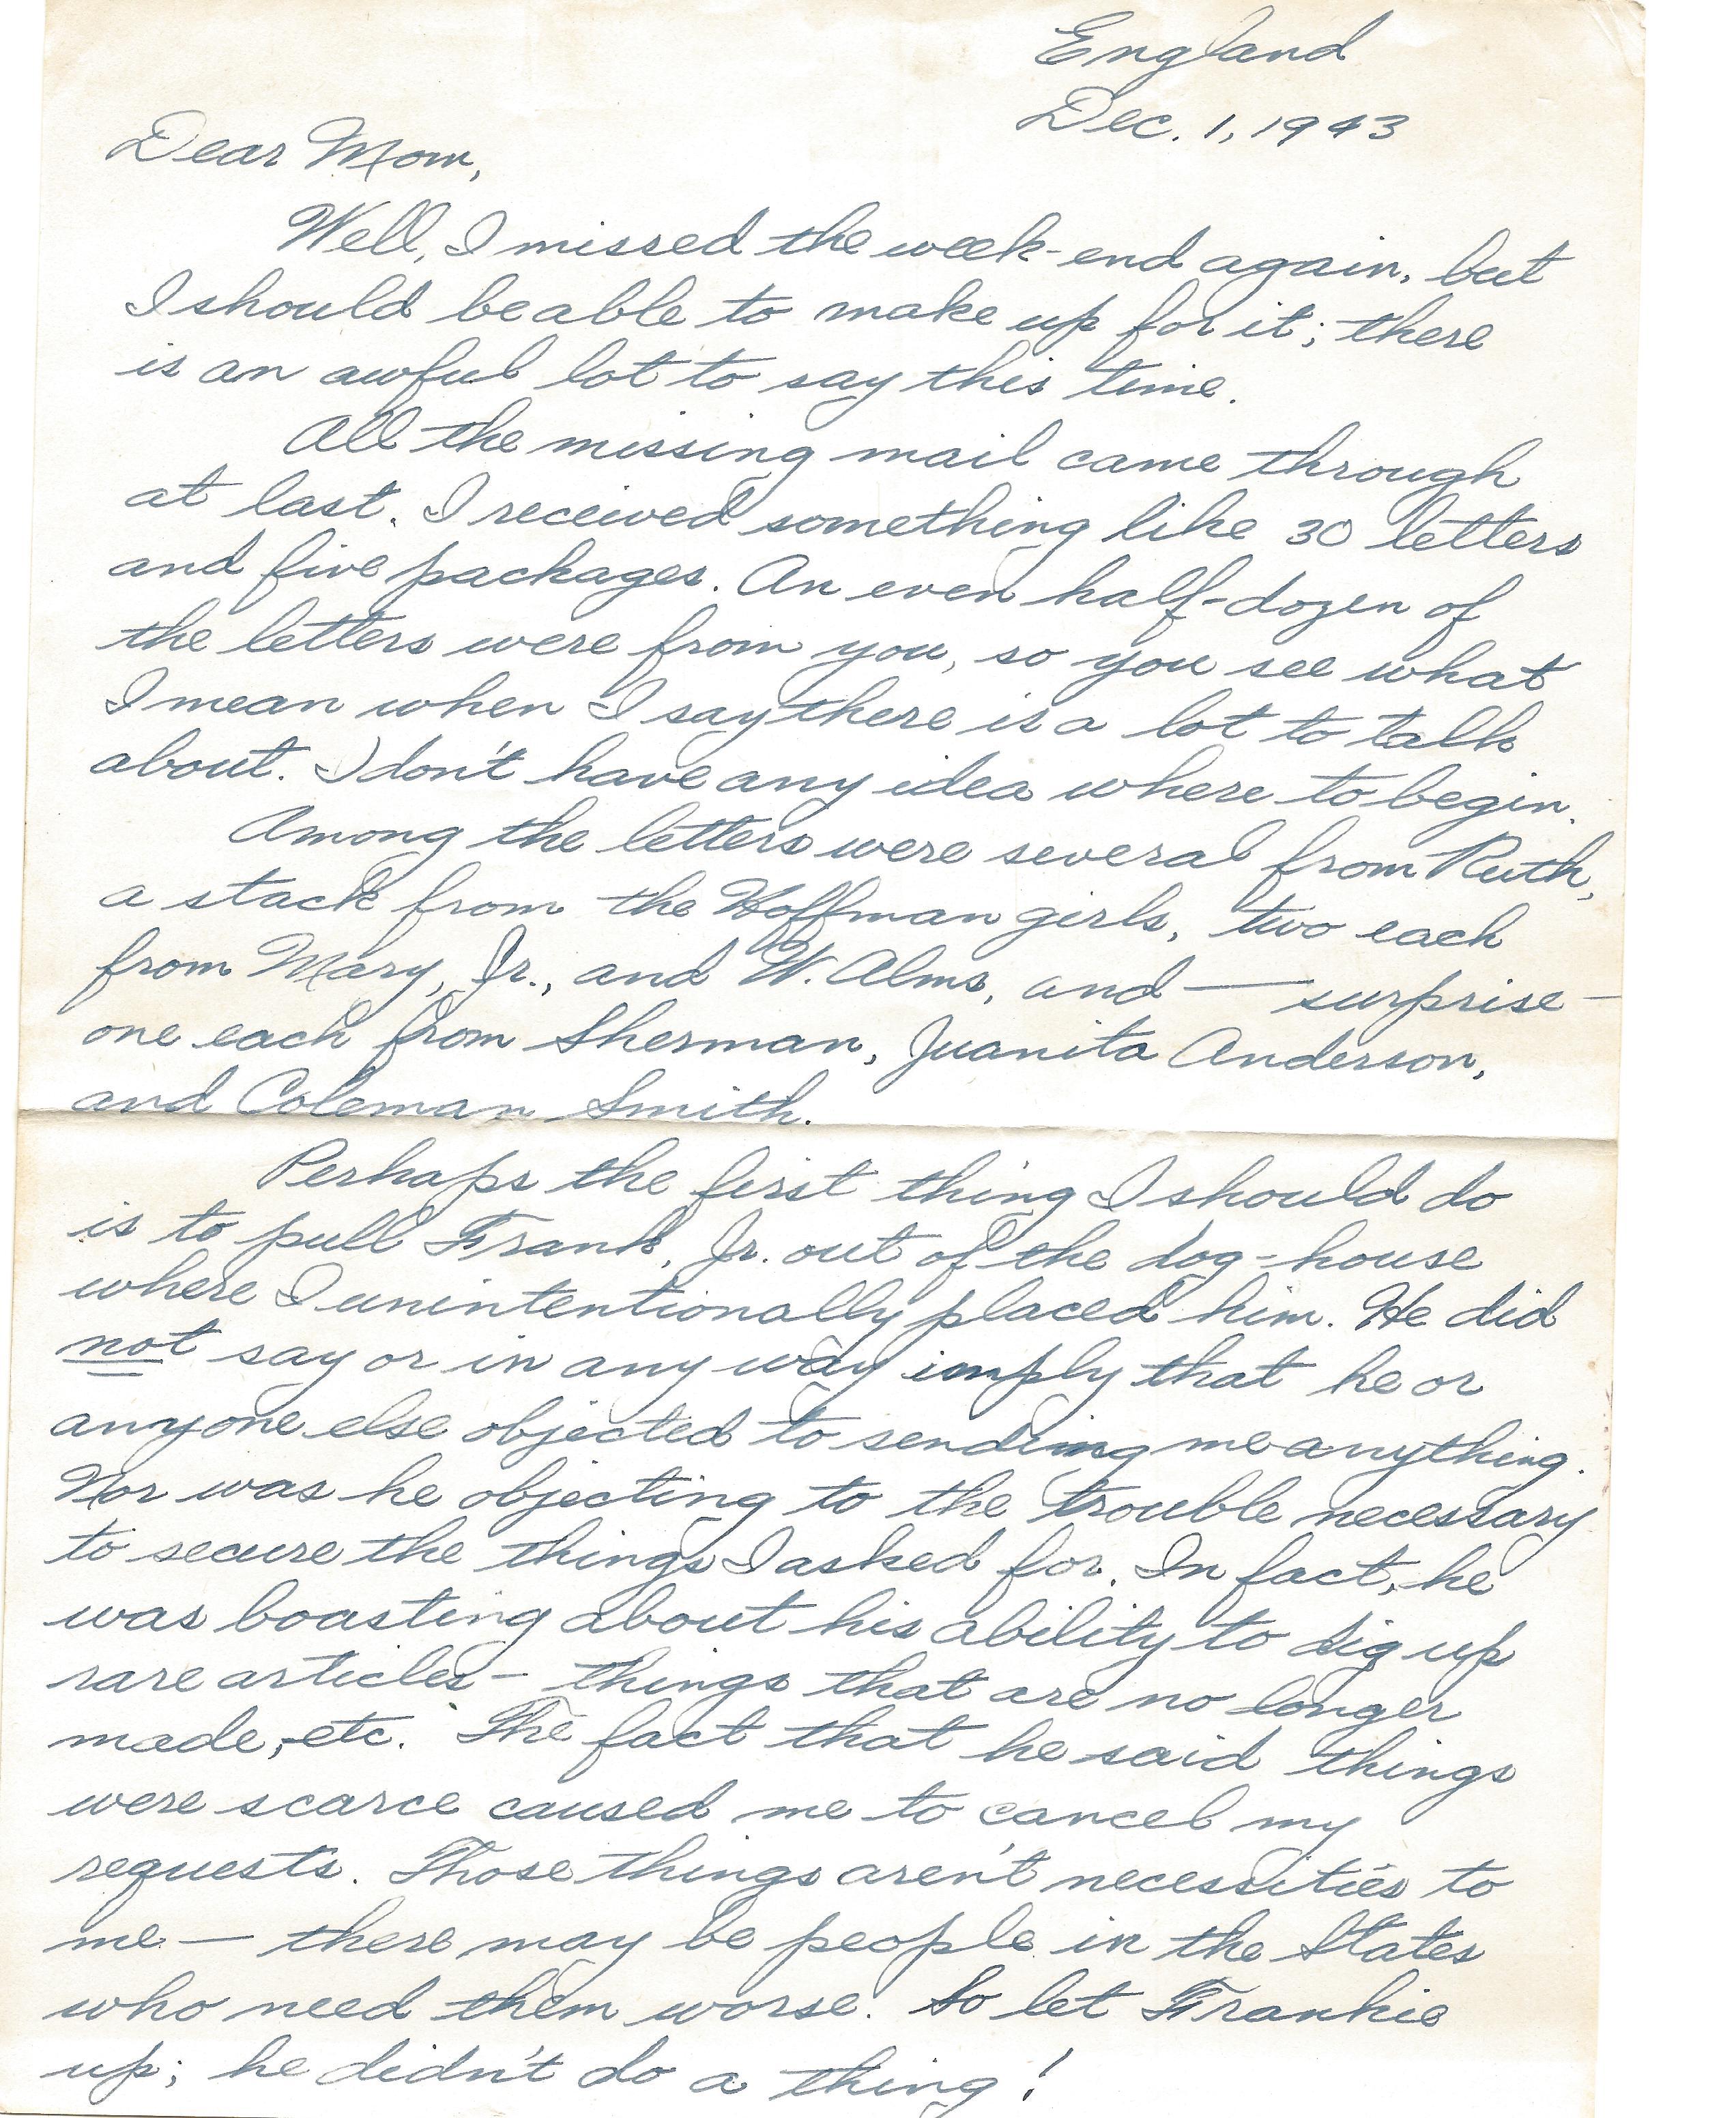 England
Dec. 1, 1943
Dear Mom,
Well, I missed the week-end again, but
I should be able to make up for it; there
is an awful lot to say this time.
All the missing mail came through
at last. I received something like 30 letters
and five packages. An even half-dozen of
the letters were from you, so you see what
I mean when I say there is a lot to talk
about. I don't have any idea where to begin.
Among the letters were several from Ruth,
a stack from the Hoffman girls, two each
from Mary, Jr., and W. Alms, and — surprise —
one each from Sherman, Juanita Anderson,
and Coleman Smith.
Perhaps the first thing I should do
is to pull Frank, Jr. out of the dog-house
where I unintentionally placed him. He did
not say or in any way imply that he or
anyone else objected to sending me anything.
Nor was he objecting to the trouble necessary
to secure the things I asked for. In fact, he
was boasting about his ability to dig up
rare articles - things that are no longer
made, etc. The fact that he said things
were scarce caused me to cancel my
requests. Those things aren't necessities to
me — there may be people in the States
who need them worse. So let Frankie
up; he didn't do a thing!